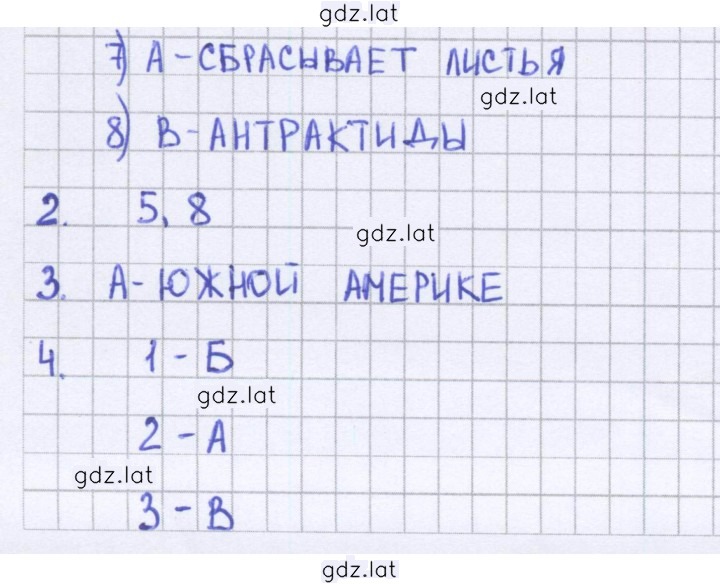 gdz.lat
7) А - СБРАСЫВАЕТ ЛИСТЬЯ
gdz.lat
8) В - АНТРАКТИДЫ
2. 5, 8
gdz.lat
3. А - ЮЖНОЙ АМЕРИКЕ
4. 1 - Б
gdz.lat
2 - А
gdz.lat
3 - В
gdz.lat